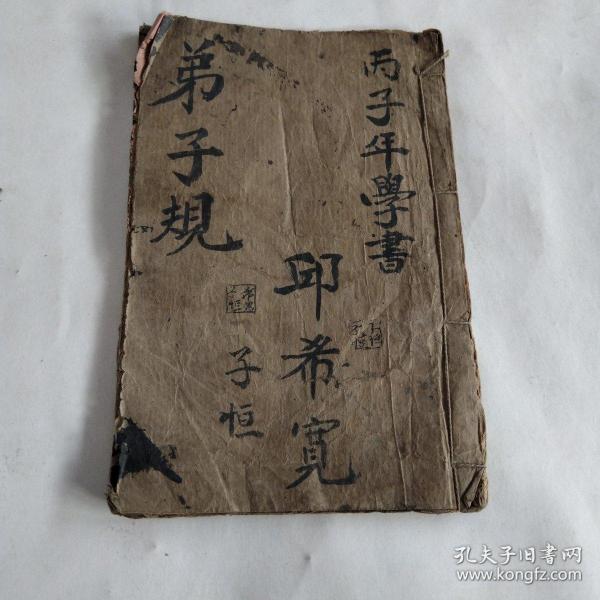 丙子年學書
邱希寬
子恒
弟子規
孔夫子旧書网
www.kongfz.com